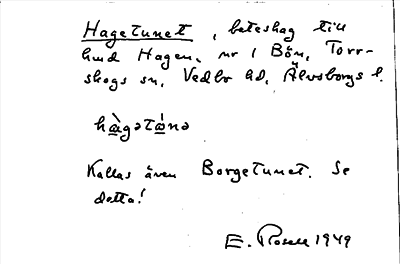 Hagetunet, beteshag till
lmd Hagen, nr 1 Bön, Torr-
skogs sn, Vedbo hd, Älvsborgs l.
hàgətúnə
Kallas även Borgetunet. Se
detta!
E. Rosell 1949